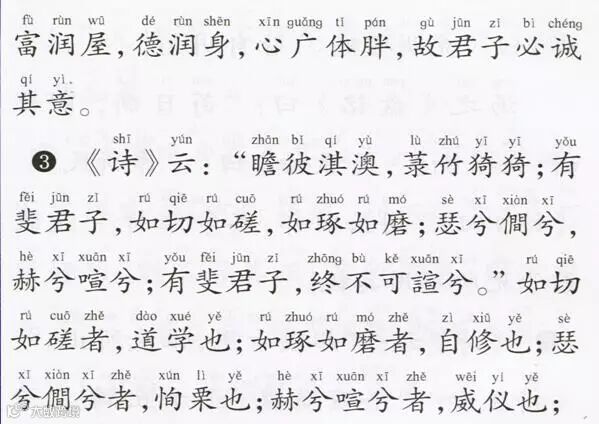 fù rùn wū dé rùn shēn xīn guǎng tǐ pán gù jūn zǐ bì chéng
富润屋,德润身,心广体胖,故君子必诚
qí yì.
其意。
shī yún zhān bǐ qí yù lù zhú yī yī yǒu
❸《诗》云:“瞻彼淇澳,菉竹猗猗;有
fěi jūn zǐ rú qiē rú cuō rú zhuó rú mó sè xī xiàn xī
斐君子,如切如磋,如琢如磨;瑟兮僩兮,
hè xī xuān xī yǒu fěi jūn zǐ zhōng bù kě xuān xī rú qiē
赫兮喧兮;有斐君子,终不可諠兮。”如切
rú cuō zhě dào xué yě rú zhuó rú mó zhě zì xiū yě sè
如磋者,道学也;如琢如磨者,自修也;瑟
xī xiàn xī zhě xún lì yě hè xī xuān xī zhě wēi yí yě
兮僩兮者,恂栗也;赫兮喧兮者,威仪也;